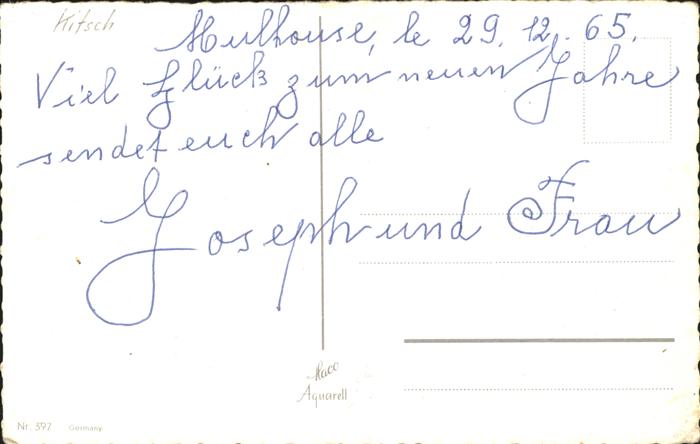 Kitsch
Mulhouse, le 29. 12. 65.
Viel Glück zum neuen Jahre
sendet euch alle
Joseph und Frau
Aquarell
Nr. 397 Germany